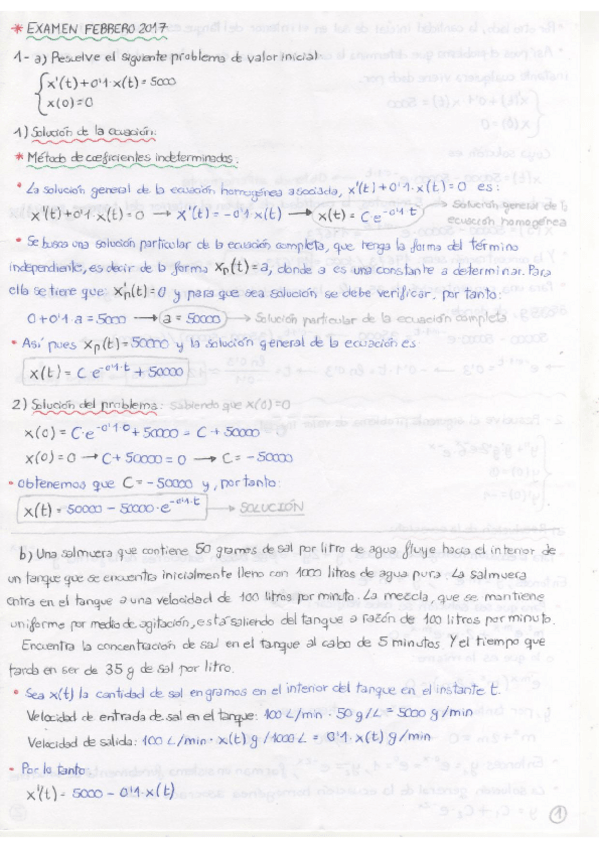 * EXAMEN FEBRERO 2017
1- a) Resuelve el siguiente problema de valor inicial
x'(t) + 0'1·x(t) = 5000
x(0) = 0
1) Solución de la ecuación:
* Método de coeficientes indeterminados:
• La solución general de la ecuación homogénea asociada, x'(t) + 0'1·x(t) = 0 es:
x'(t) + 0'1·x(t) = 0 → x'(t) = -0'1·x(t) → x(t) = C e^-0'1·t → Solución general de la ecuación homogénea
• Se busca una solución particular de la ecuación completa, que tenga la forma del término
independiente, es decir de la forma xp(t) = a, donde a es una constante a determinar. Para
ella se tiene que: xp'(t) = 0 y para que sea solución se debe verificar, por tanto:
0 + 0'1·a = 5000 → a = 50000 → Solución particular de la ecuación completa
• Así pues xp(t) = 50000 y la solución general de la ecuación es
x(t) = C e^-0'1·t + 50000
2) Solución del problema: sabiendo que x(0) = 0
x(0) = C·e^-0'1·0 + 50000 = C + 50000
x(0) = 0 → C + 50000 = 0 → C = -50000
• obtenemos que C = -50000 y, por tanto:
x(t) = 50000 - 50000·e^-0'1·t → SOLUCIÓN
b) Una salmuera que contiene 50 gramos de sal por litro de agua fluye hacia el interior de
un tanque que se encuentra inicialmente lleno con 1000 litros de agua pura. La salmuera
entra en el tanque a una velocidad de 100 litros por minuto. La mezcla, que se mantiene
uniforme por medio de agitación, está saliendo del tanque a razón de 100 litros por minuto.
Encuentra la concentración de sal en el tanque al cabo de 5 minutos. Y el tiempo que
tarda en ser de 35 g de sal por litro.
• Sea x(t) la cantidad de sal en gramos en el interior del tanque en el instante t.
Velocidad de entrada de sal en el tanque: 100 L/min · 50 g/L = 5000 g/min
Velocidad de salida: 100 L/min · x(t) g / 1000 L = 0'1·x(t) g/min
• Por lo tanto
x'(t) = 5000 - 0'1·x(t)
1